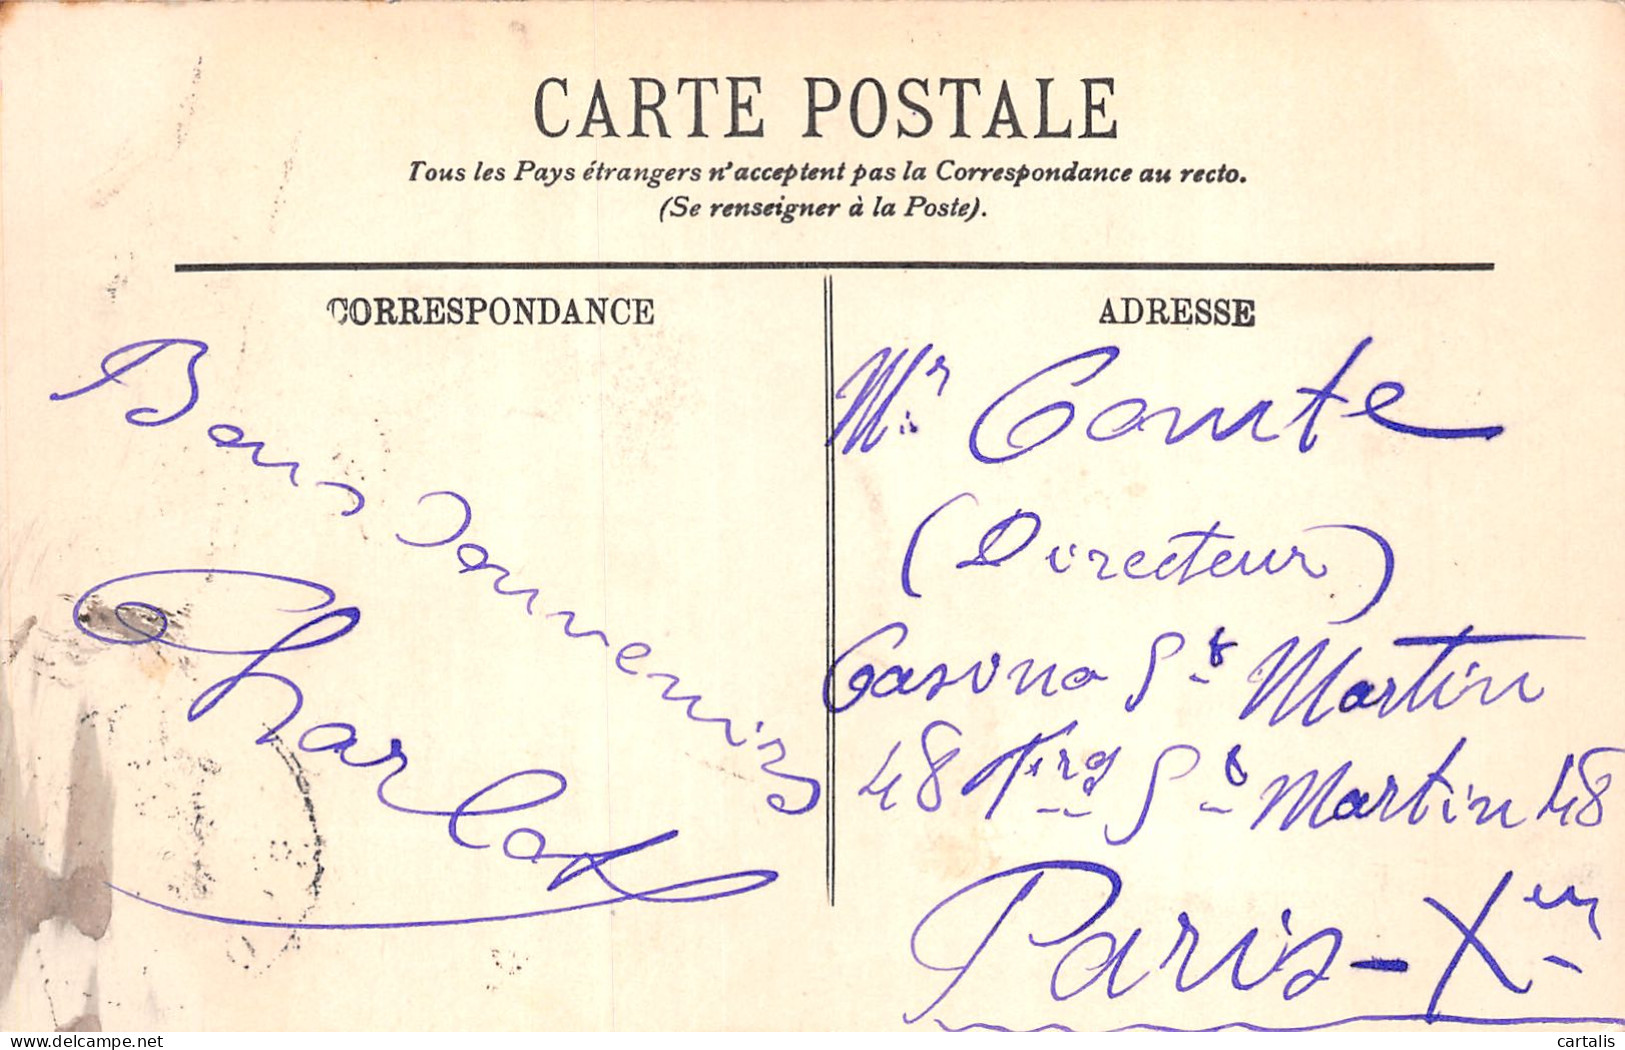 CARTE POSTALE
Tous les Pays étrangers n'acceptent pas la Correspondance au recto.
(Se renseigner à la Poste).
CORRESPONDANCE
Bons Souvenirs
Charlot
ADRESSE
Mr Comte
(Directeur)
Casino St Martin
48 Frg St Martin 48
Paris-Xem
delcampe.net
cartalis